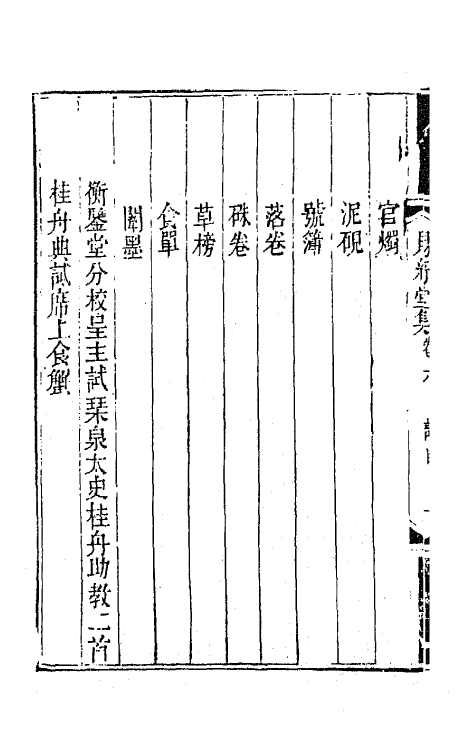 官燭
泥硯
號簿
落卷
硃卷
草榜
食單
闈墨
衡鑒堂分校呈主試琹泉太史桂舟助教二首
桂舟典試席上食蟹